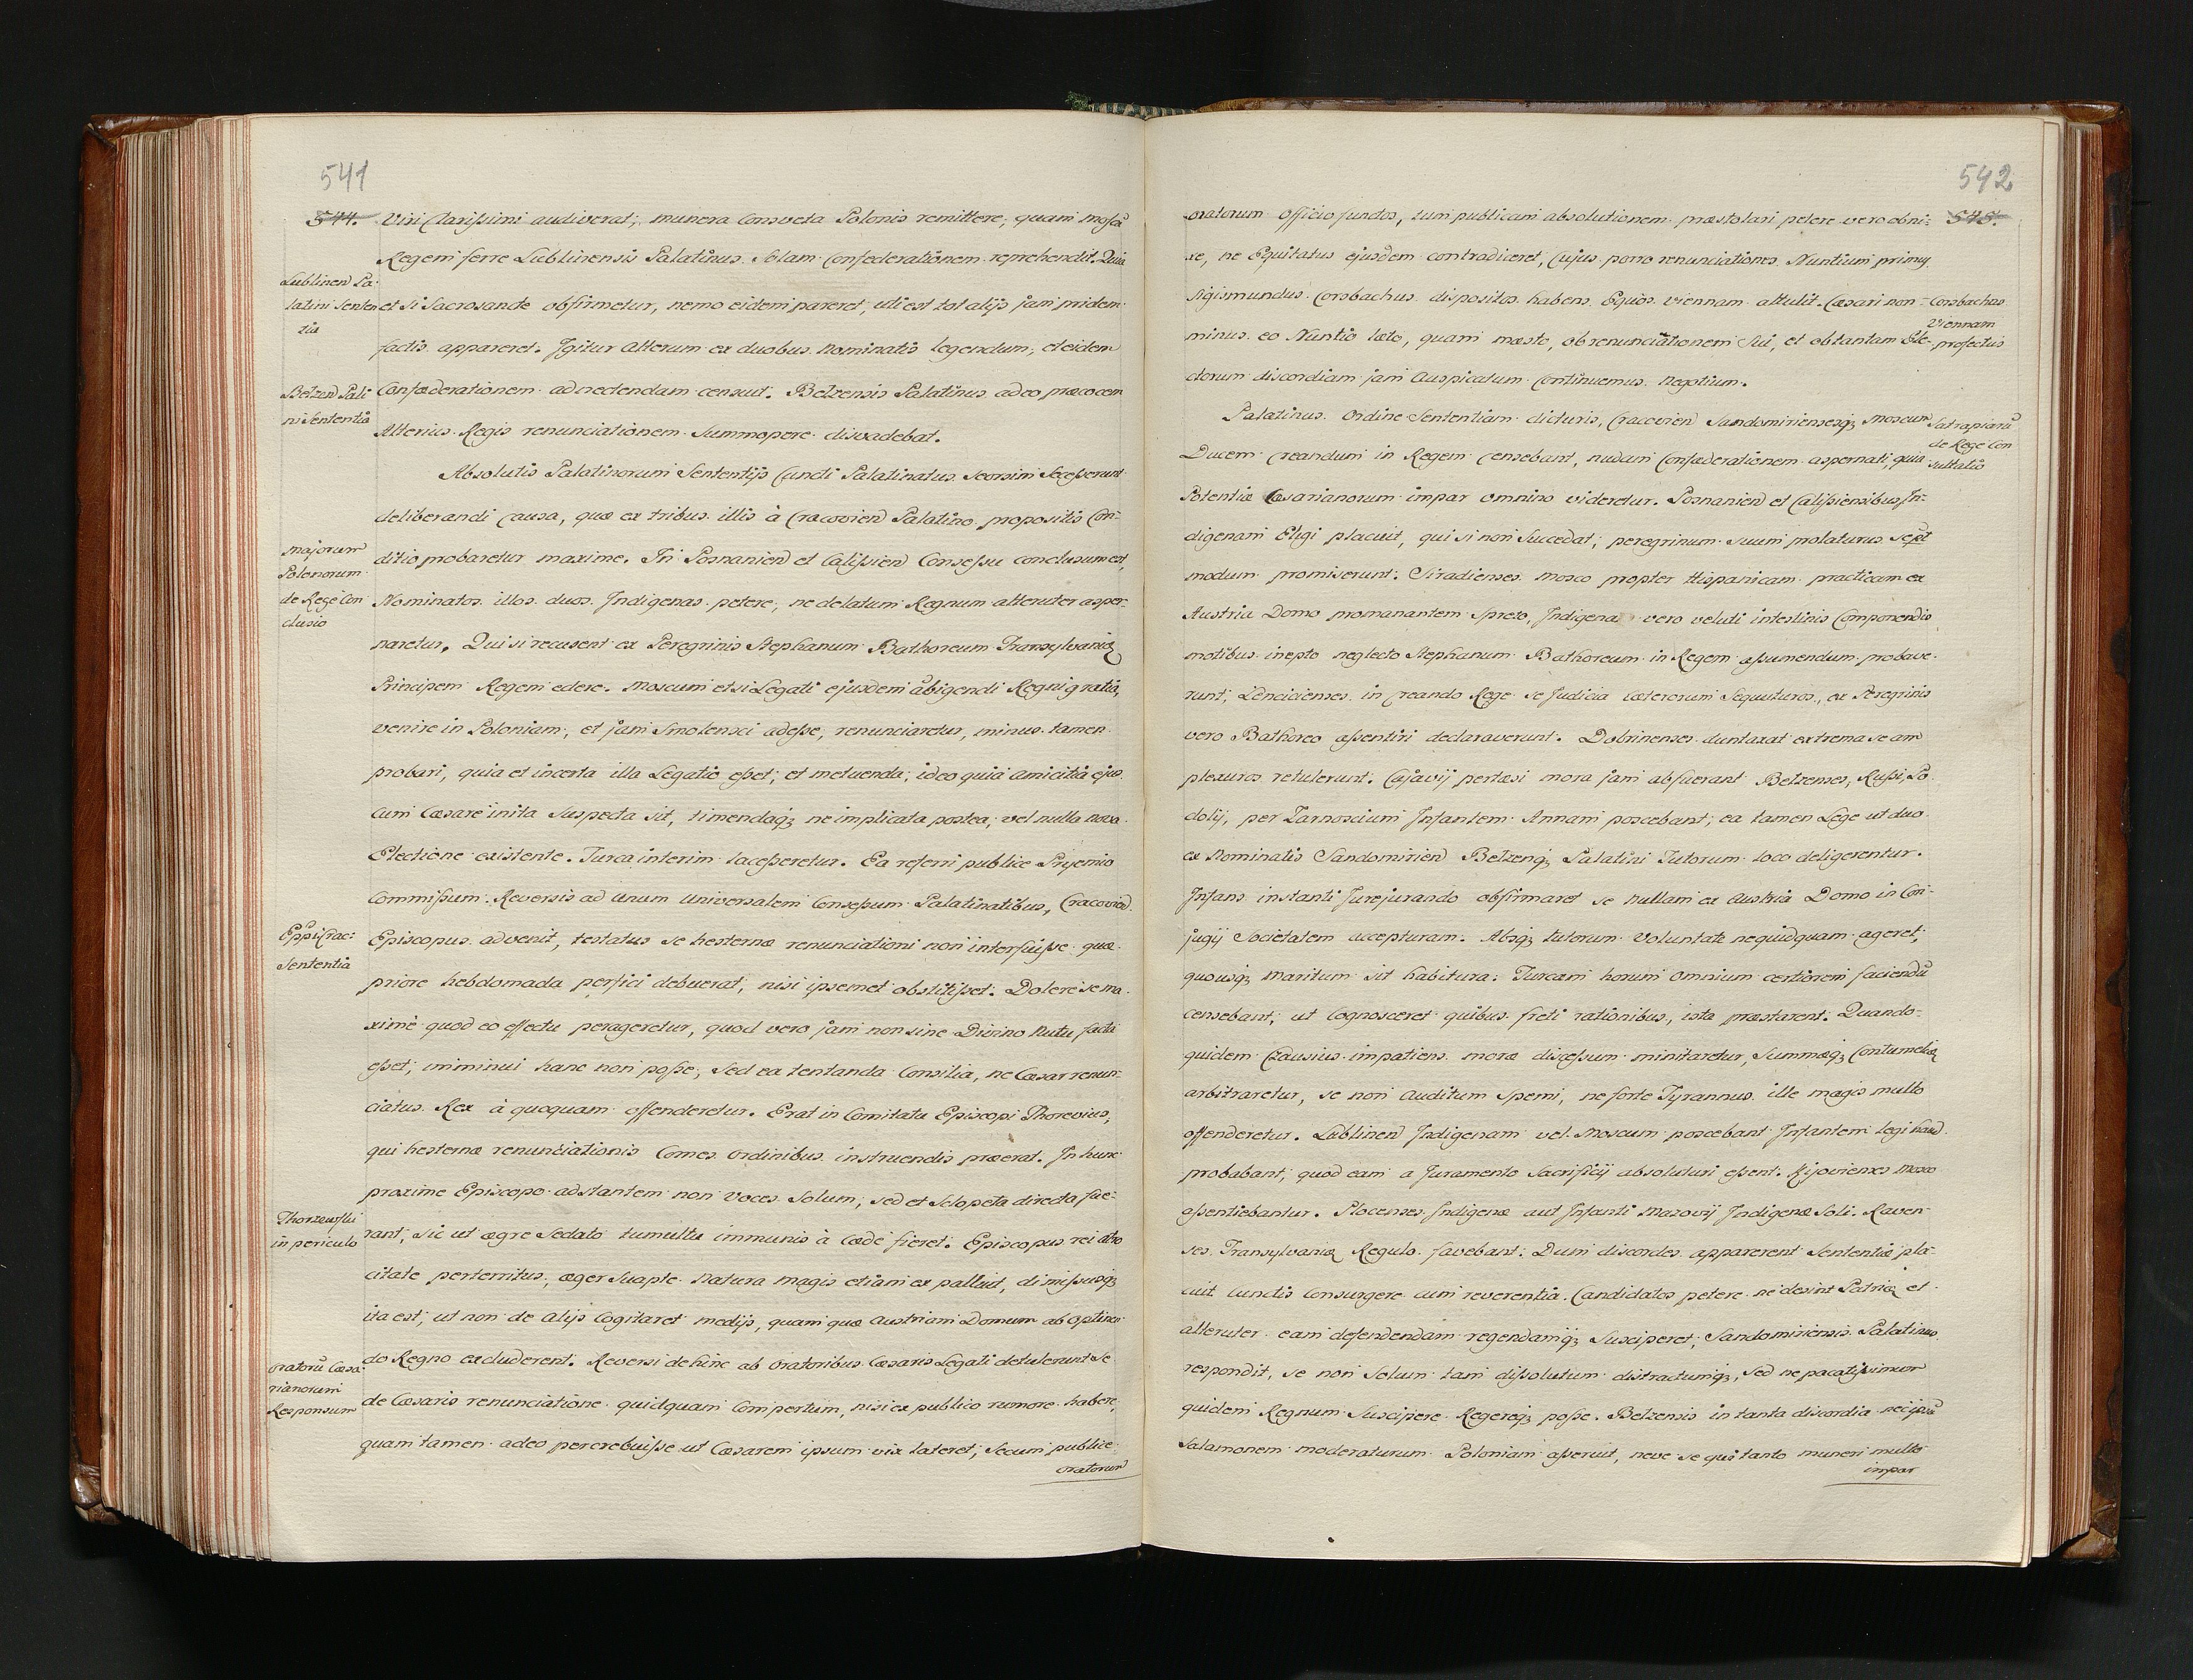 541
544.
Viri Clarissimi audiverat; munera Consveta Polonis remittere, quam moscū
Regem ferre Lublinensis Palatinus. Solam Confederationem reprehendit. Quia
Lublinen̄ Pa-
latini Senten
tia
et si Sacrosancte obfirmetur, nemo eidem pareret, uti est tot alijs jam pridem
factis appareret. Igitur Alterum ex duobus Nominatis legendum, et eidem
Belzen̄ Pala
ni Sententia
Confæderationem adnectendam censuit. Belzensis Palatinus adeo præcocem
Alterius Regis renunciationem Summopere disvadebat.
Absolutis Palatinorum Sententijs Cuncti Palatinatus Seorsim Secesserunt
deliberandi Causa, quæ ex tribus illis à Cracovien̄ Palatino propositis Con-
majorum
Polonorum
de Rege Con
clusio
ditio probaretur maxime. In Posnanien̄ et Calissien̄ Consessu conclusum est,
Nominatos illos duos Indigenas petere, ne delatum Regnum alteruter asper-
naretur. Qui si recusent ex Peregrinis Stephanum Bathoreum Transylvaniæ
Principem Regem edere. Moscum etsi Legati ejusdem ambigendi Regni gratia,
venire in Poloniam, et jam Smolensci adesse, renunciaretur, minus tamen
probari, quia et incerta illa Legatio esset; et metuenda; ideo quia amicitia ejus
cum Cæsare inita Suspecta sit, timendaq; ne implicata postea, vel nulla nova
Electione existente. Turca interim lacesseretur. Ea referri publice Prijemio
Commissum. Reversis ad Unum Universalem Consessum Palatinatibus, Cracovien̄
Eppi Crac:
Sententia
Episcopus advenit, testatus se hesternæ renunciationi non interfuisse quæ
priore hebdomada perfici debuerat, nisi ipsemet obstitisset. Dolere se ma-
ximè quod eo effectu perageretur, quod vero jam non sine Divino Nutu facta
esset; imminui hanc non posse, Sed ea tentanda Consilia, ne Cæsar renun-
ciatus Rex à quoquam offenderetur. Erat in Comitatu Episcopi Thorevius,
qui hesternæ renunciationis Comes Ordinibus instruendis præerat. In hunc
proxime Episcopo adstantem non Voces Solum, sed et Sclopeta directa fue-
Thorzewski
in periculo
rant; sic ut ægre Sedato tumultu immunis à cæde fieret. Episcopus rei atro
citate perterritus, æger Suapte Natura magis etiam ex palluit, dimissusq;
ita est, ut non de Alijs Cogitaret medijs, quam quæ Austriam Domum ab optinen-
Oratorū Cæsa
rianorum
Responsum
do Regno excluderent. Reversi dehinc ab Oratoribus Cæsaris Legati detulerunt se
de Cæsaris renunciatione quidquam Compertum, nisi ex publico rumore habere,
quam tamen adeo percrebuisse ut Cæsarem ipsum vix lateret, Secum publice
oratorum
542
545.
oratorum officio functos, tum publicam absolutionem præstolari petere vero obni-
xe, ne Equitatus ejusdem contradiceret, Cujus porro renunciationes Nuntium primus
Sigismundus Corsbachus dispositos habens Equos Viennam attulit. Cæsari non
Corsbachus
Viennam
profectus
minus eo Nuntio læto, quam mæsto, ob renunciationem Sui, et ob tantam Ele-
ctorum discordiam jam Auspicatum Continuemus Negotium.
Palatinus Ordine Sententiam dicturis, Cracovien̄ Sandomiriensesq; Moscum
Satrapiarū
de Rege Con
sultatio
Ducem Creandum in Regem Censebant, nudam Confæderationem aspernati, quia
Potentiæ Cæsarianorum impar omnino videretur. Posnanien̄ et Calissiensibus In-
digenam Eligi placuit, qui si non Succedat; peregrinum suum prolaturus sept
modum promiserunt. Siradienses Mosco propter Hispanicam practicam ex
Austria Domo promanantem Spreto, Indigena vero veluti intestinis Componendis
motibus inepto neglecto Stephanum Bathoreum in Regem assumendum probave-
runt; Lencicienses in Creando Rege se Judicia cæterorum Sequuturos, ex Peregrinis
vero Bathoreo assentiri declaraverunt. Dobrinenses duntaxat extrema se am
plexuros retulerunt. Cujavij pertæsi mora jam abfuerant Belzenses, Russi, Po-
dolij, per Tarnoscium Infantem Annam poscebant; ea tamen Lege ut duo
ex Nominatis Sandomirien̄ Belzenq; Palatini Tutorum loco deligerentur.
Infans instanti Jurejurando obfirmaret se nullam ex Austria Domo in Con-
jugij Societatem accepturam. Absq; tutorum Voluntate nequidquam ageret,
quousq; Maritum sit habitura: Turcam horum Omnium certiorem faciendū
censebant, ut Cognosceret quibus freti rationibus, ista præstarent. Quando-
quidem Czausius impatiens moræ discessum minitaretur, Summæq; Contumeliæ
arbitraretur, se non Auditum Sperni, ne forte Tyrannus ille magis multo
offenderetur. Lublinen̄ Indigenam vel Moscum poscebant Infantem legi haud
probabant; quod eam a Juramento Sacrificij absoluturi essent. Kijovienses Mosco
assentiebantur. Plocenses Indigenæ aut Infanti Mazovij Indigenæ Soli. Raven-
ses Transylvaniæ Regulo favebant. Dum discordes apparerent Sententiæ pla-
cuit cunctis Consurgere cum reverentia Candidatos petere ne desint Patriæ et
alteruter eam defendendam regendamq; Susciperet; Sandomiriensis Palatinus
respondit, se non Solum tam dissolutum distractumq;, Sed ne pacatissimum
quidem Regnum Suscipere Regereq; posse. Belzensis in tanta discordia nec ipsū
Salamonem moderaturum Poloniam asseruit, neve se qui tanto muneri multo
impar